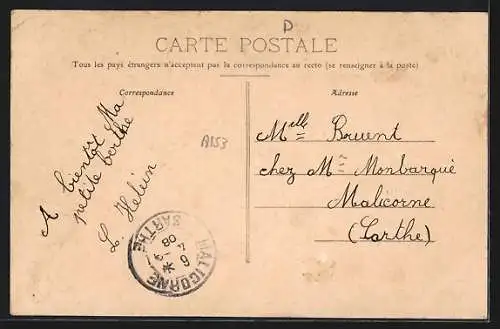 D
CARTE POSTALE
Tous les pays étrangers n'acceptent pas la correspondance au recto (se renseigner à la poste)
Correspondance
A bientôt Ma
petite berthe
L. Helein
A153
MALICORNE
SARTHE
Adresse
Melle Bruent
chez Mme Monbarqué
Malicorne
(Sarthe)